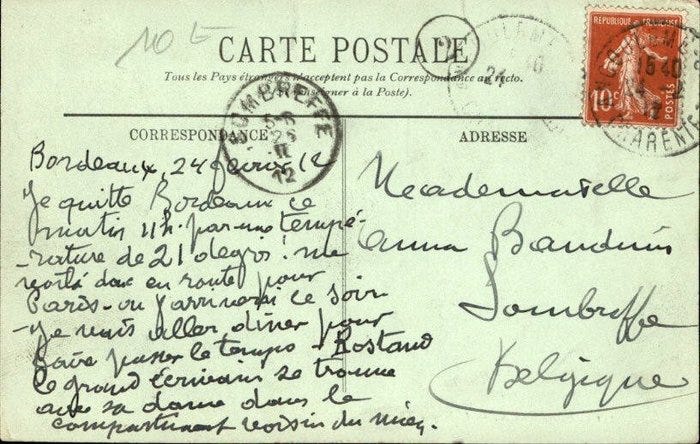 10 E
CARTE POSTALE
Tous les Pays étrangers n'acceptent pas la Correspondance au recto.
(Se renseigner à la Poste).
RÉPUBLIQUE FRANÇAISE
10c
15 40
24
CHARENTE
SOMBREFFE
25
II
12
CORRESPONDANCE
ADRESSE
Bordeaux, 24 février 12
Je quitte Bordeaux ce
matin 11h. par une tempé-
-rature de 21 degrés! me
voilà donc en route pour
Paris - où j'arriverai ce soir
- Je vais aller dîner pour
faire passer le temps - Rostand
le grand écrivain se trouve
avec sa dame dans le
compartiment voisin du mien.
Mademoiselle
Anna Bauduin
Sombreffe
Belgique